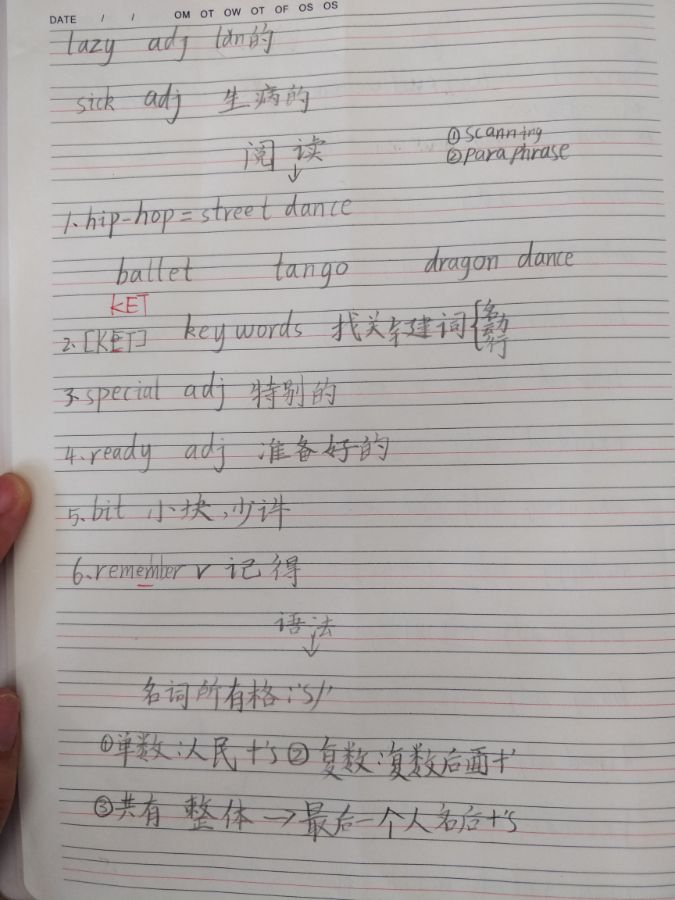 DATE / / OM OT OW OT OF OS OS
lazy adj lǎn的
sick adj 生病的
阅读
↓
①scanning
②paraphrase
1.hip-hop=street dance
ballet tango dragon dance
KET
2.[KET] key words 找关键词{名
动
行
3.special adj 特别的
4.ready adj 准备好的
5.bit 小块,少许
6.remember v 记得
语法
↓
名词所有格:'s/'
①单数:人民+'s ②复数:复数后面+'
③共有 整体→最后一个人名后+'s